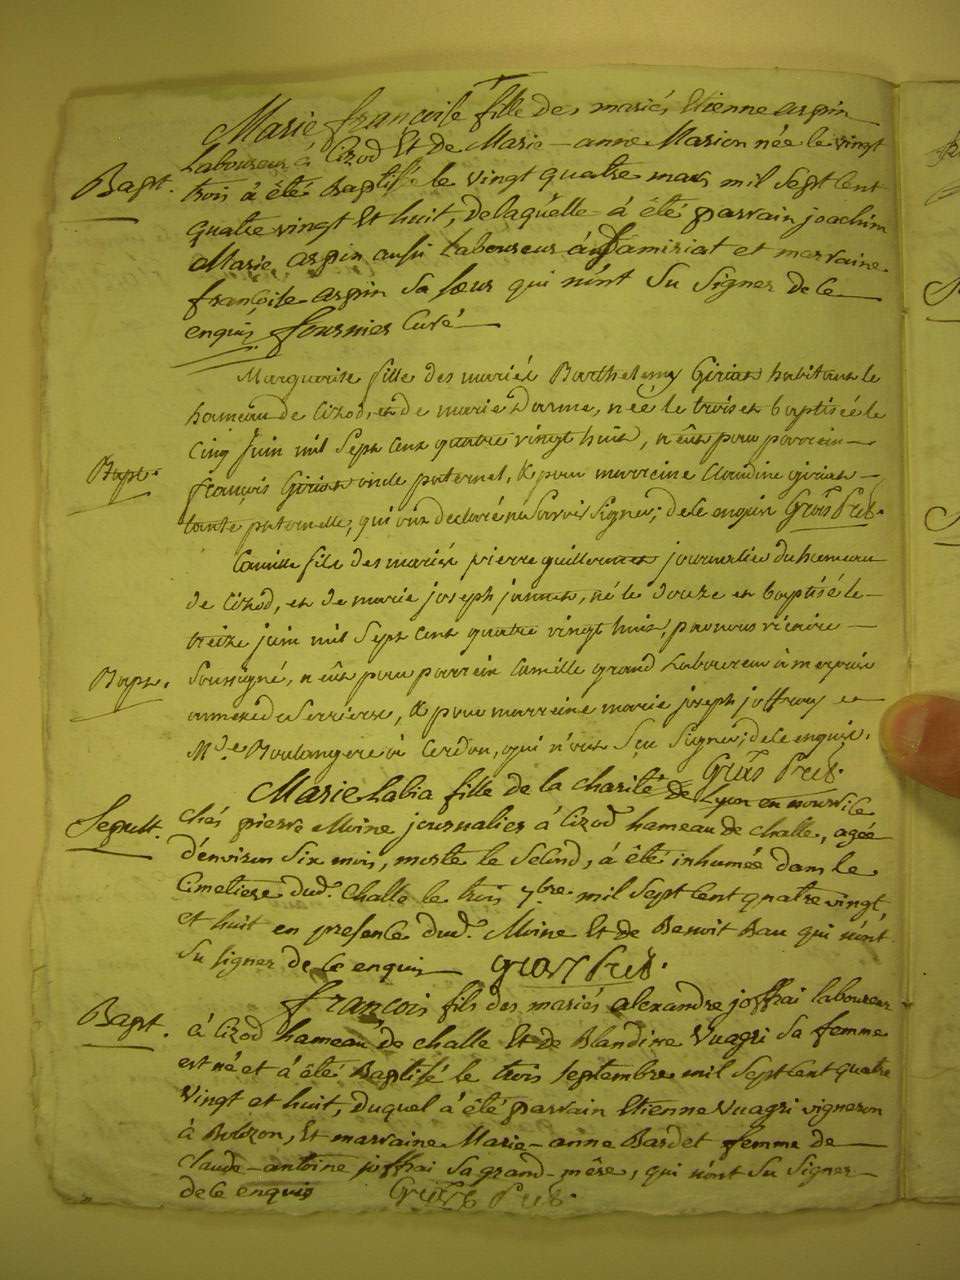 Marie françoise fille des mariés Etienne arpin
Laboureur à Cizod Et de Marie-anne Marion née le vingt
Bapt. trois à été Baptisée le vingt quatre mars mil Sept Cent
quatre vingt Et huit, de laquelle à été parrain joachim
Marie arpin aussi Laboureur à Samiriat et marraine
françoise arpin Sa Sœur qui n'ont Su Signer de Ce
enquis fournier Curé
Marguerite fille des mariés Barthelemy Giriat habitant le
hameau de Cizod, et de marie Darme, née le trois et baptisée le
cinq juin mil Sept cent quatre vingt huit, a eût pour parrein
Bapt. françois Giriat oncle paternel, & pour marreine Claudine giriat
tante paternelle, qui ont declaré ne Savoir Signer, de ce enquis Gras Prêt.
Camille fils des mariés pierre guillermet journalié du hameau
de Cizod, et de marie joseph jannet, né le douze et baptisé le
treize juin mil Sept cent quatre vingt huit, par nous vicaire
Bapt. Soussigné, a eût pour parrein Camille grand Laboureur à merpuis
annexe de Serrieres, & pour marreine marie joseph joffray et
Mde Boulangere à Cerdon, qui n'ont Sçu Signer, de ce enquis.
Gras Prêt.
Marie Labia fille de la Charité de Lyon en nourrice
Sepult. chés pierre Moine journalier à Cizod hameau de challe, agée
d'environ Six mois, morte le Second, à été inhumée dans le
Cimetiere dud. Challe le trois 7bre mil Sept Cent quatre vingt
et huit en presence dud. Moine Et de Benoit Bau qui n'ont
Su signer de Ce enquis Gras Prêt.
françois fils des mariés alexandre joffrai laboureur
Bapt. à Cizod hameau de challe Et de Blandine Vuagri Sa femme
est né et à été Baptisé le trois Septembre mil Sept Cent quatre
Vingt et huit, duquel à été parrain Etienne Vuagri vigneron
à Bolozon, Et marraine Marie-anne Bardet femme de
Claude-antoine joffrai Sa grand-mère, qui n'ont Su Signer
de Ce enquis Gras Prêt.